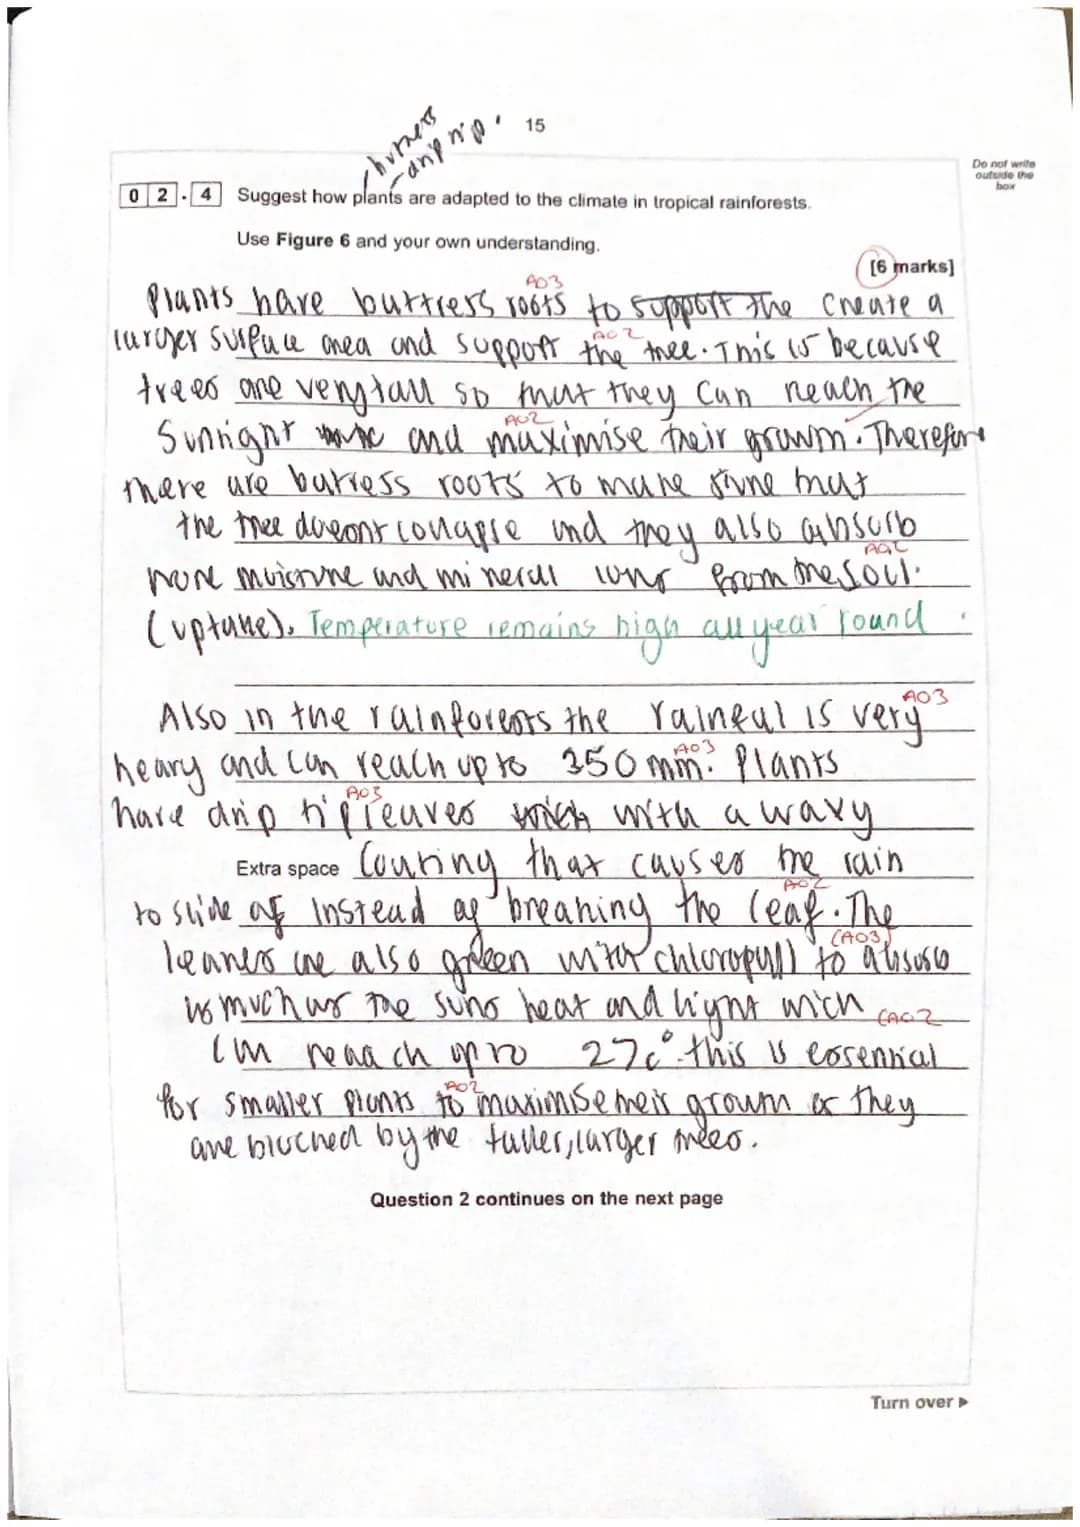 buttress
15
- drip tip.
Do not write
outside the
box
0 2 . 4 Suggest how plants are adapted to the climate in tropical rainforests.
Use Figure 6 and your own understanding.
[6 marks]
AO3
Plants have buttress roots to support the create a
AO2
larger surface area and support the tree. This is because
trees are very tall so that they can reach the
AO2
Sunlight and maximise their growth. Therefore
there are buttress roots to make sure that
the tree doesnt collapse and they also absorb
AO2
more moisture and mineral ions from the soil.
(uptake). Temperature remains high all year round.
AO3
Also in the rainforests the rainfal is very
AO3
heavy and can reach up to 350mm. Plants
AO3
have drip tip leaves which with a waxy
Extra space Couting that causes the rain
AO2
to slide of instead of breaking the leaf. The
(AO3)
leaves are also green with chloropyll to absorb
as much as the suns heat and light wich
(AO2
can reaach up to 27c° this is essential
AO2
for smaller plants to maximise their growth as they
are blocked by the taller, larger trees.
Question 2 continues on the next page
Turn over ►